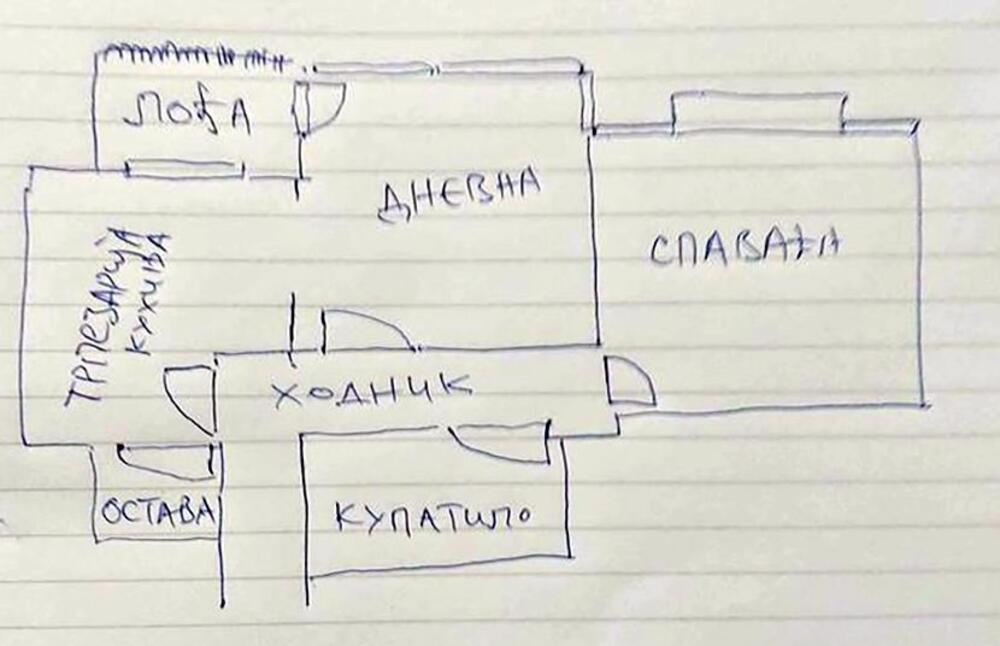 ЛОЂА
ДНЕВНА
СПАВАЋА
ТРПЕЗАРИЈА
КУХИЊА
ХОДНИК
ОСТАВА
КУПАТИЛО